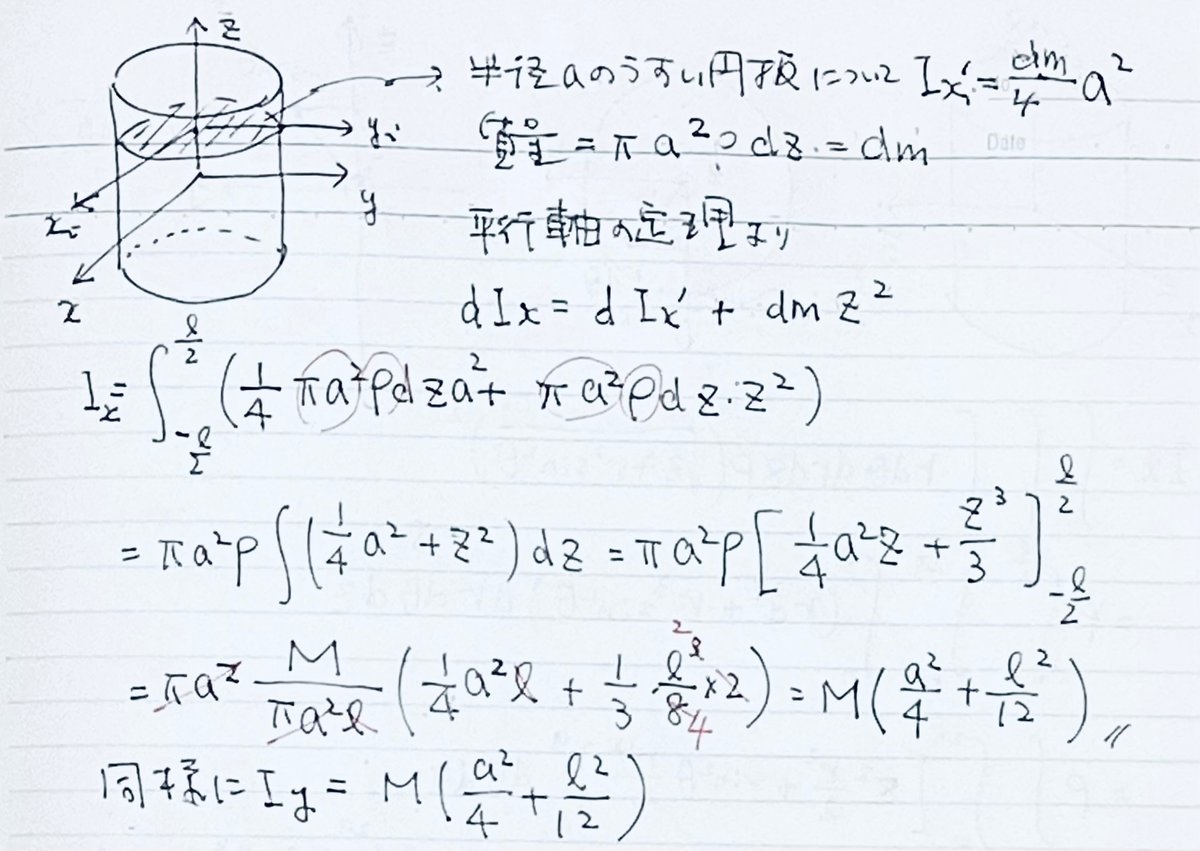 z
半径aのうすい円板について Ix'ᵢ = dm/4 a²
yᵢ
質量 = πa²ρdz = dm
y
xᵢ
平行軸の定理より
x
dIx = dIx' + dm z²
Ix = ∫_{-ℓ/2}^{ℓ/2} (1/4 πa²ρdz a² + πa²ρdz·z²)
= πa²ρ∫(1/4 a² + z²)dz = πa²ρ[1/4 a²z + z³/3]_{-ℓ/2}^{ℓ/2}
= πa² M/(πa²ℓ) (1/4 a²ℓ + 1/3 · ℓ³/8 × 2) = M(a²/4 + ℓ²/12) //
同様に Iy = M(a²/4 + ℓ²/12)